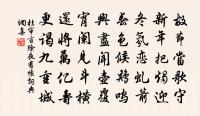 故節當歌守
新年把燭迎
冬氛戀虬箭
春色候雞鳴
興盡聞壺覆
宵闌見斗橫
還將萬億壽
更謁九重城
杜審言除夜有懷詞典
網集